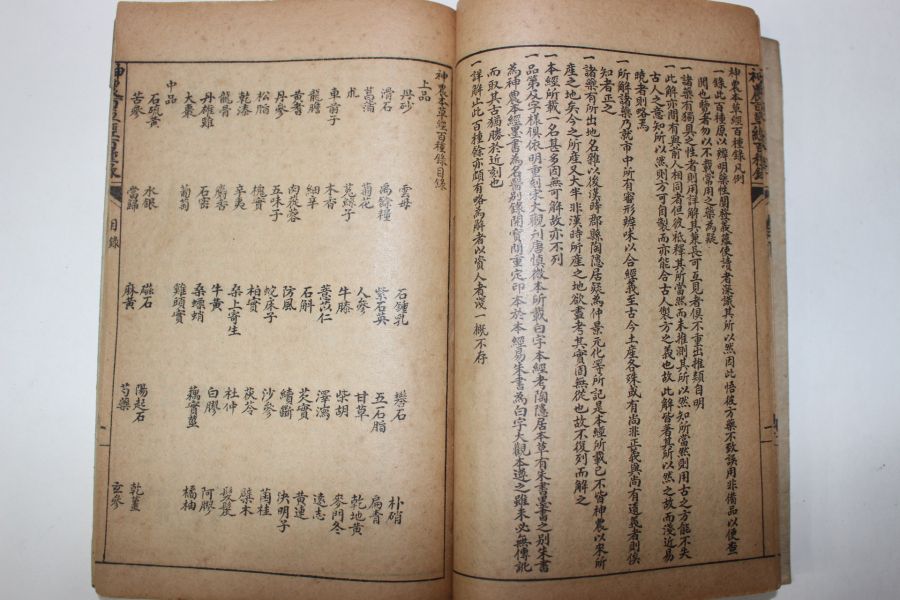 神農本草經百種錄凡例
一錄此百種原以辨明藥性闡發義蘊使讀者深識其所以然因此悟彼方藥不致誤用非備品以便查
閱也覽者勿以不載常用之藥為疑
一諸藥有獨具之性者則用詳解其兼長可互見者俱不重出推類自明
一此解亦間有與前人相同者但彼秪釋其所當然而未推測其所以然知所當然則用古之方能不失
古人之意知所以然則方可自製而亦能合古人製方之義也故此解皆著其所以然之故而淺近易
曉者則略焉
一所解諸藥乃就市中所有審形辨味以合經義至古今土產各殊或有尚非正義與尚有遺義者則俟
知者正之
一諸藥有所出地名雖以後漢時郡縣陶隱居疑為仲景元化等所記是本經所載已不皆神農以來所
產之地矣今之所產又大半非漢時所產之地欲盡考其實固無從也故不復列而解之
一本經所載一名甚多因無可解故亦不列
一品第及字樣俱依明重刻宋大觀刊唐慎微本所載白字本經考陶隱居本草有朱書墨書之別朱書
為神農本經墨書為名醫別錄開寶間重定印本於本經易朱書為白字大觀本遵之雖未必無傳訛
而取其古猶勝於近刻也
一詳解止此百種餘亦頗有略為解者以資人者茂一概不存
神農本草經百種目錄
上品
丹砂 雲母 石鍾乳 礬石 朴硝
滑石 禹餘糧 紫石英 五石脂 扁青
菖蒲 菊花 人參 甘草 乾地黃
朮 菟絲子 牛膝 柴胡 麥門冬
車前子 木香 薏苡仁 澤瀉 遠志
龍膽 細辛 石斛 芡實 黃連
黃耆 肉蓯蓉 防風 續斷 決明子
丹參 五味子 蛇床子 沙參 菌桂
松脂 槐實 柏實 茯苓 檗木
乾漆 辛夷 桑上寄生 杜仲 髮髲
龍骨 麝香 牛黃 白膠 阿膠
丹雄雞 石蜜 桑螵蛸 藕實莖 橘柚
大棗 葡萄 雞頭實
中品
石硫黃 水銀 磁石 陽起石 乾薑
苦參 當歸 麻黃 芍藥 玄參
目錄